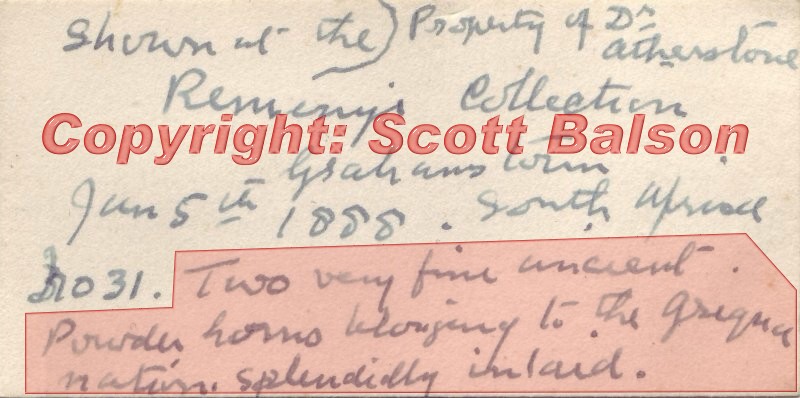 Shown at the) Property of Dr
Atherstone
Remenyi's Collection
Copyright: Scott Balson
Grahamstown
Jan 5th 1888. South Africa
1031. Two very fine ancient.
Powder horns belonging to the Griqua
nation. splendidly inlaid.